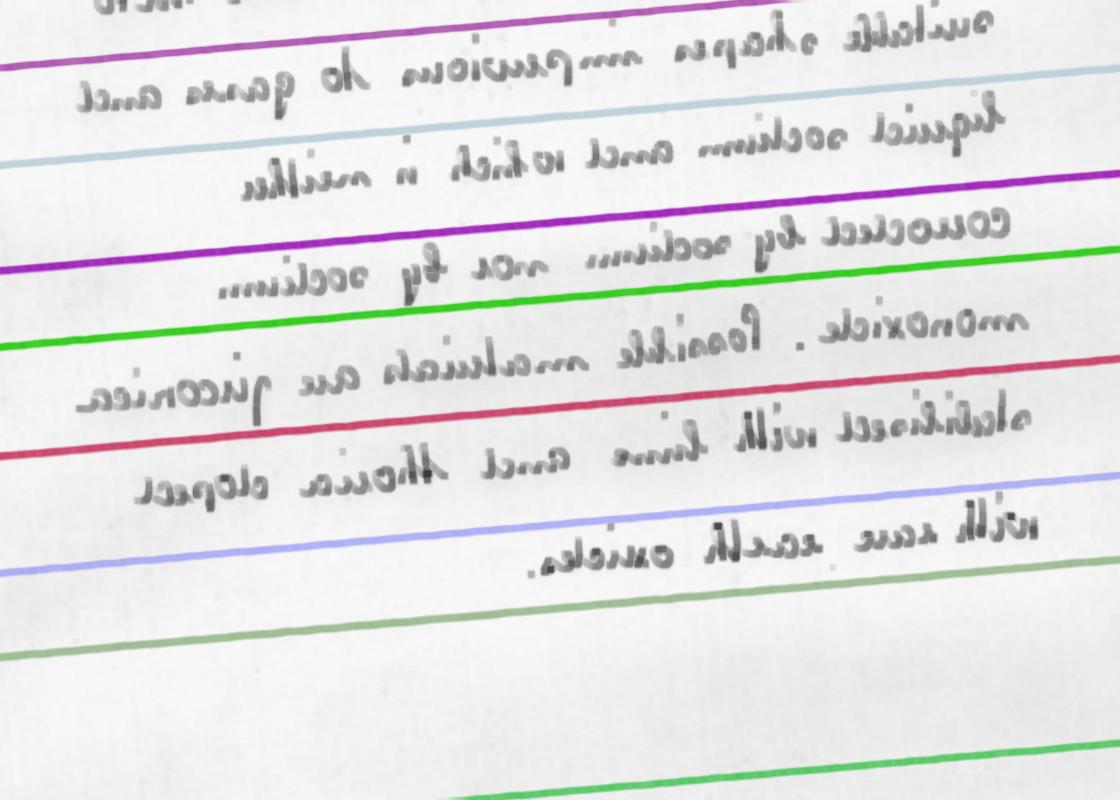 suitable shapes impervious to gases and
liquid sodium and which is neither
corroded by sodium nor by sodium
monoxide. Possible materials are zirconia
stabilised with lime and thoria doped
with rare earth oxides.